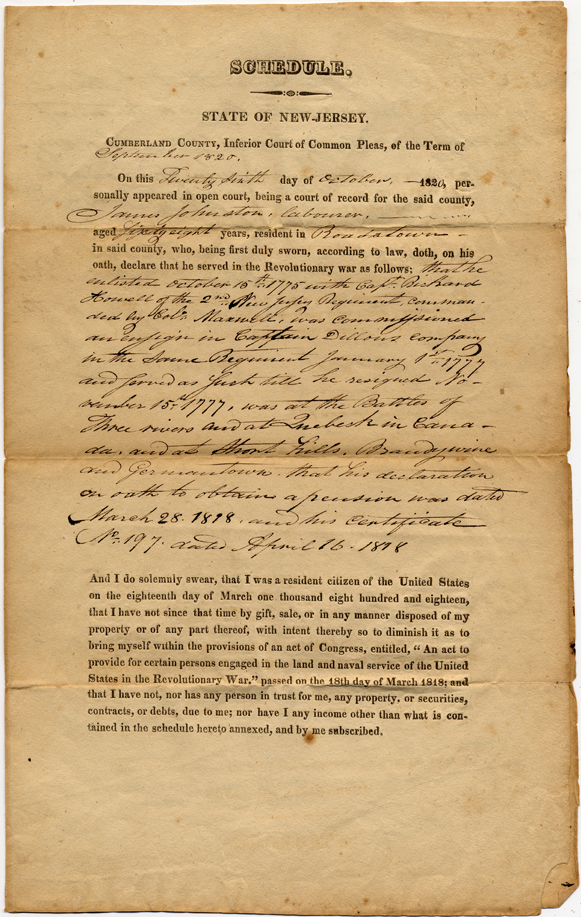 SCHEDULE.
STATE OF NEW-JERSEY.
CUMBERLAND COUNTY, Inferior Court of Common Pleas, of the Term of
September 1820.
On this Twenty sixth day of October, 1820, per-
sonally appeared in open court, being a court of record for the said county,
James Johnston, labourer,
aged Sixty eight years, resident in Roadstown
in said county, who, being first duly sworn, according to law, doth, on his
oath, declare that he served in the Revolutionary war as follows: that he
enlisted October 15th 1775 with Capt. Richard
Howell of the 2nd New Jersey Regiment, comman-
ded by Colo. Maxwell, was commissioned
an ensign in Captain Dillons company
in the same Regiment January 1st 1777
and served as such till he resigned No-
vember 15th 1777, was at the Battles of
Three rivers and at Quebeck in Cana-
da, and at Short hills, Brandywine
and Germantown. that his declaration
on oath to obtain a pension was dated
March 28. 1818. and his certificate
No. 197. dated April 16. 1818
And I do solemnly swear, that I was a resident citizen of the United States
on the eighteenth day of March one thousand eight hundred and eighteen,
that I have not since that time by gift, sale, or in any manner disposed of my
property or of any part thereof, with intent thereby so to diminish it as to
bring myself within the provisions of an act of Congress, entitled, "An act to
provide for certain persons engaged in the land and naval service of the United
States in the Revolutionary War," passed on the 18th day of March 1818; and
that I have not, nor has any person in trust for me, any property, or securities,
contracts, or debts, due to me; nor have I any income other than what is con-
tained in the schedule hereto annexed, and by me subscribed.